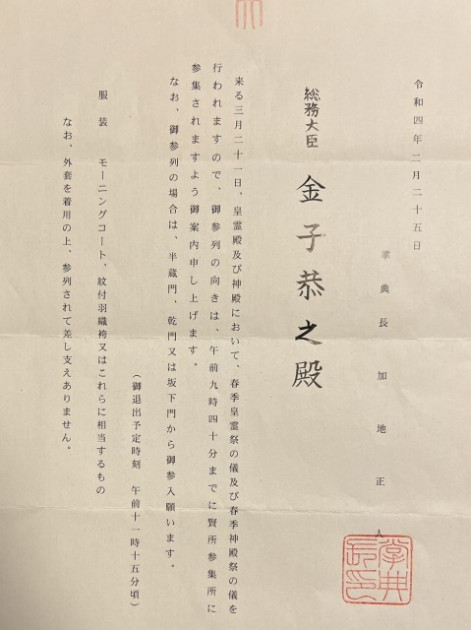 令和四年二月二十五日
掌典長　加地正人
総務大臣　金子恭之殿
来る三月二十一日、皇霊殿及び神殿において、春季皇霊祭の儀及び春季神殿祭の儀を
行われますので、御参列の向きは、午前九時四十分までに賢所参集所に
参集されますよう御案内申し上げます。
なお、御参列の場合は、半蔵門、乾門又は坂下門から御参入願います。
（御退出予定時刻　午前十一時十五分頃）
服装　モーニングコート、紋付羽織袴又はこれらに相当するもの
なお、外套を着用の上、参列されて差し支えありません。
掌典長印